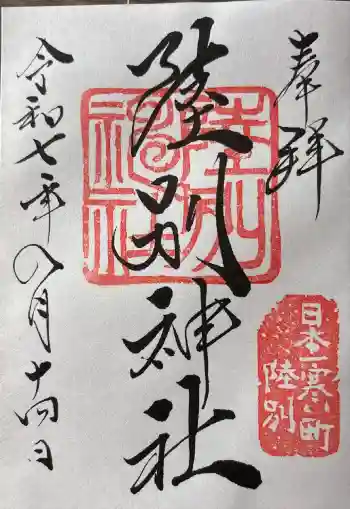 奉拝
陸別神社
陸別神社
日本一寒い町
陸別
令和七年八月十四日